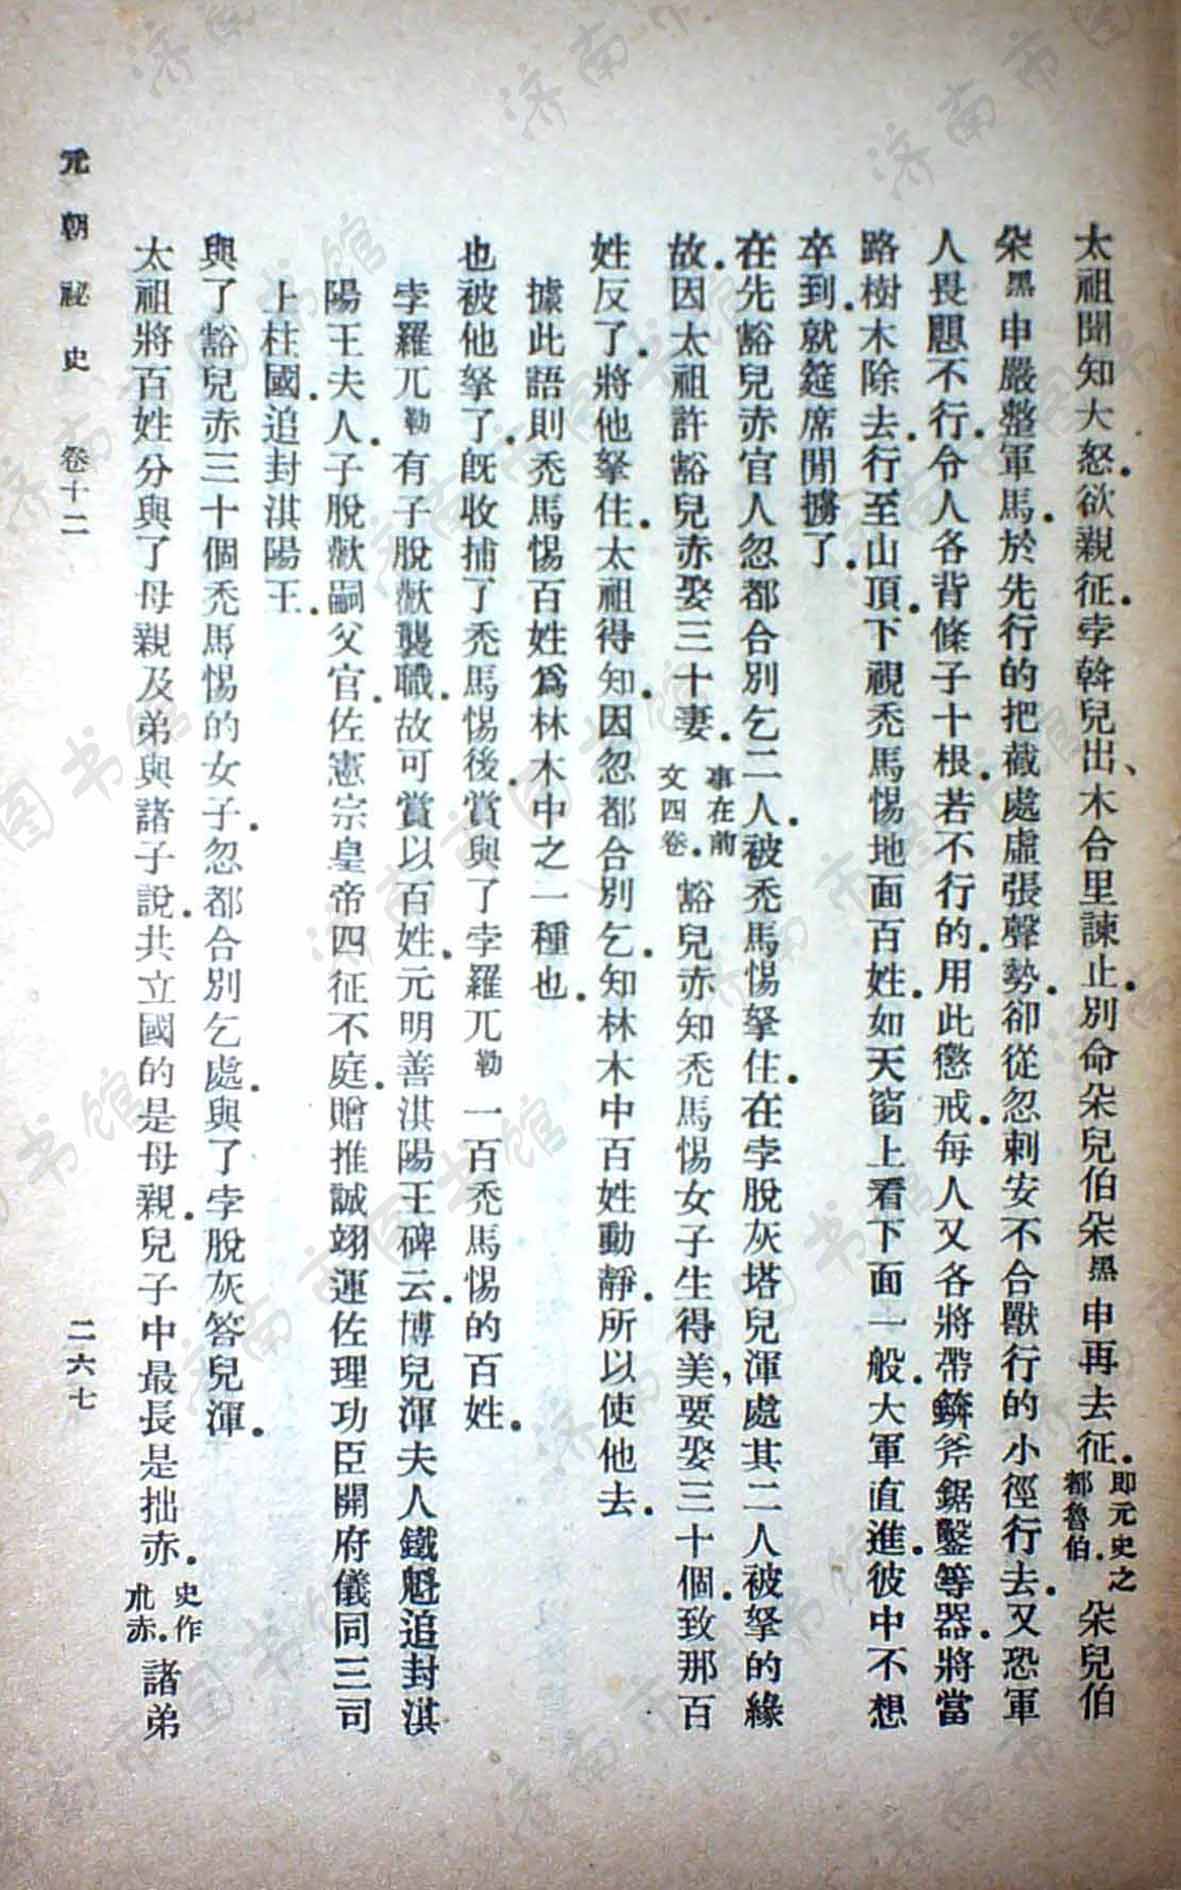 太祖聞知大怒.欲親征.孛斡兒出、木合里諫止.別命朵兒伯朵黑申再去征.即元史之都魯伯.朵兒伯
朵黑申嚴整軍馬.於先行的把截處虛張聲勢.卻從忽剌安不合獸行的小徑行去.又恐軍
人畏思不行.令人各背條子十根.若不行的.用此懲戒.每人又各將帶錛斧鋸鑿等器.將當
路樹木除去.行至山頂.下視禿馬惕地面百姓.如天窗上看下面一般.大軍直進.彼中不想
卒到.就筵席閒擄了.
在先豁兒赤官人忽都合別乞二人.被禿馬惕拏住.在孛脫灰塔兒渾處.其二人被拏的緣
故.因太祖許豁兒赤娶三十妻.事在前文四卷.豁兒赤知禿馬惕女子生得美,要娶三十個.致那百
姓反了.將他拏住.太祖得知.因忽都合別乞.知林木中百姓動靜.所以使他去.
據此語則禿馬惕百姓爲林木中之一種也.
也被他拏了.既收捕了禿馬惕後.賞與了孛羅兀勒一百禿馬惕的百姓.
孛羅兀勒有子脫歡襲職.故可賞以百姓.元明善淇陽王碑云.博兒渾夫人鐵魁追封淇
陽王夫人.子脫歡嗣父官.佐憲宗皇帝四征不庭.贈推誠翊運佐理功臣開府儀同三司
上柱國.追封淇陽王.
與了豁兒赤三十個禿馬惕的女子.忽都合別乞處.與了孛脫灰答兒渾.
太祖將百姓分與了母親及弟與諸子說.共立國的是母親.兒子中最長是拙赤.史作朮赤.諸弟
元朝祕史 卷十二 二六七
济南市图书馆